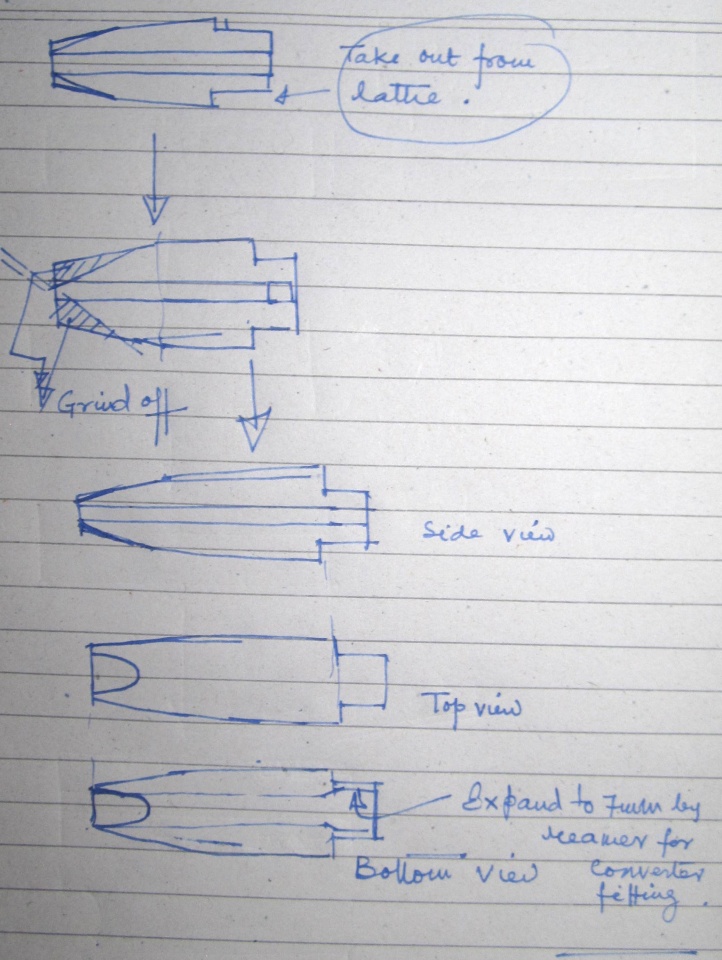 Take out from
lattie.
Grind off
Side view
Top view
Expand to 7mm by
reamer for
Bottom view converter
fitting.